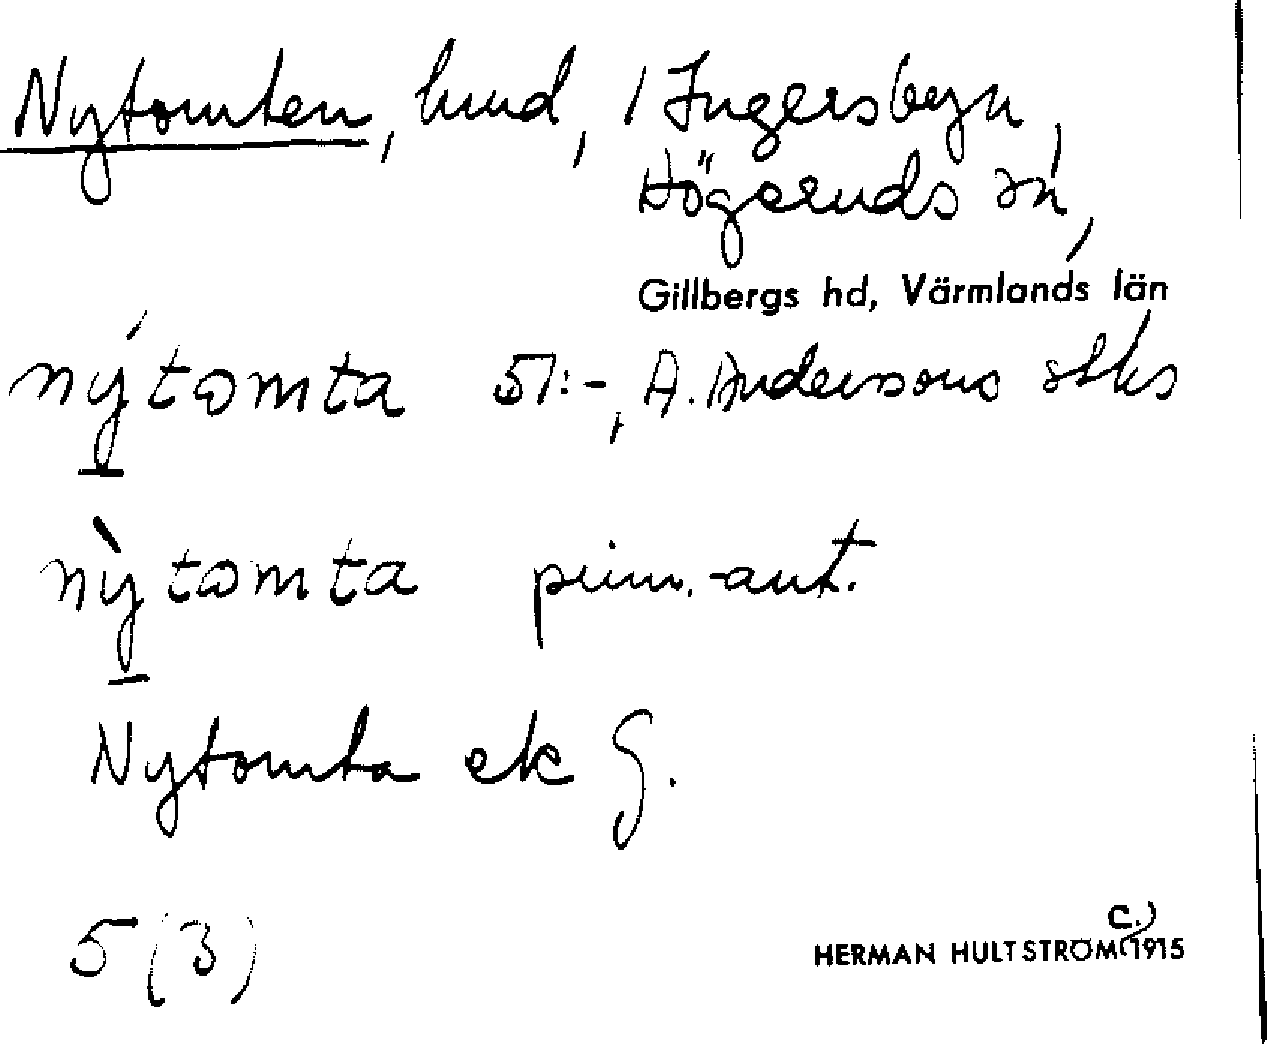 Nytomten, hmd, i Ingersbyn,
Högeruds sn,
Gillbergs hd, Värmlands län
nýtomta 51:-, A. Anderssons
nỳtomta prim.-ant.
Nytomta ek G.
5 (3)
HERMAN HULTSTRÖM (C.) 1915